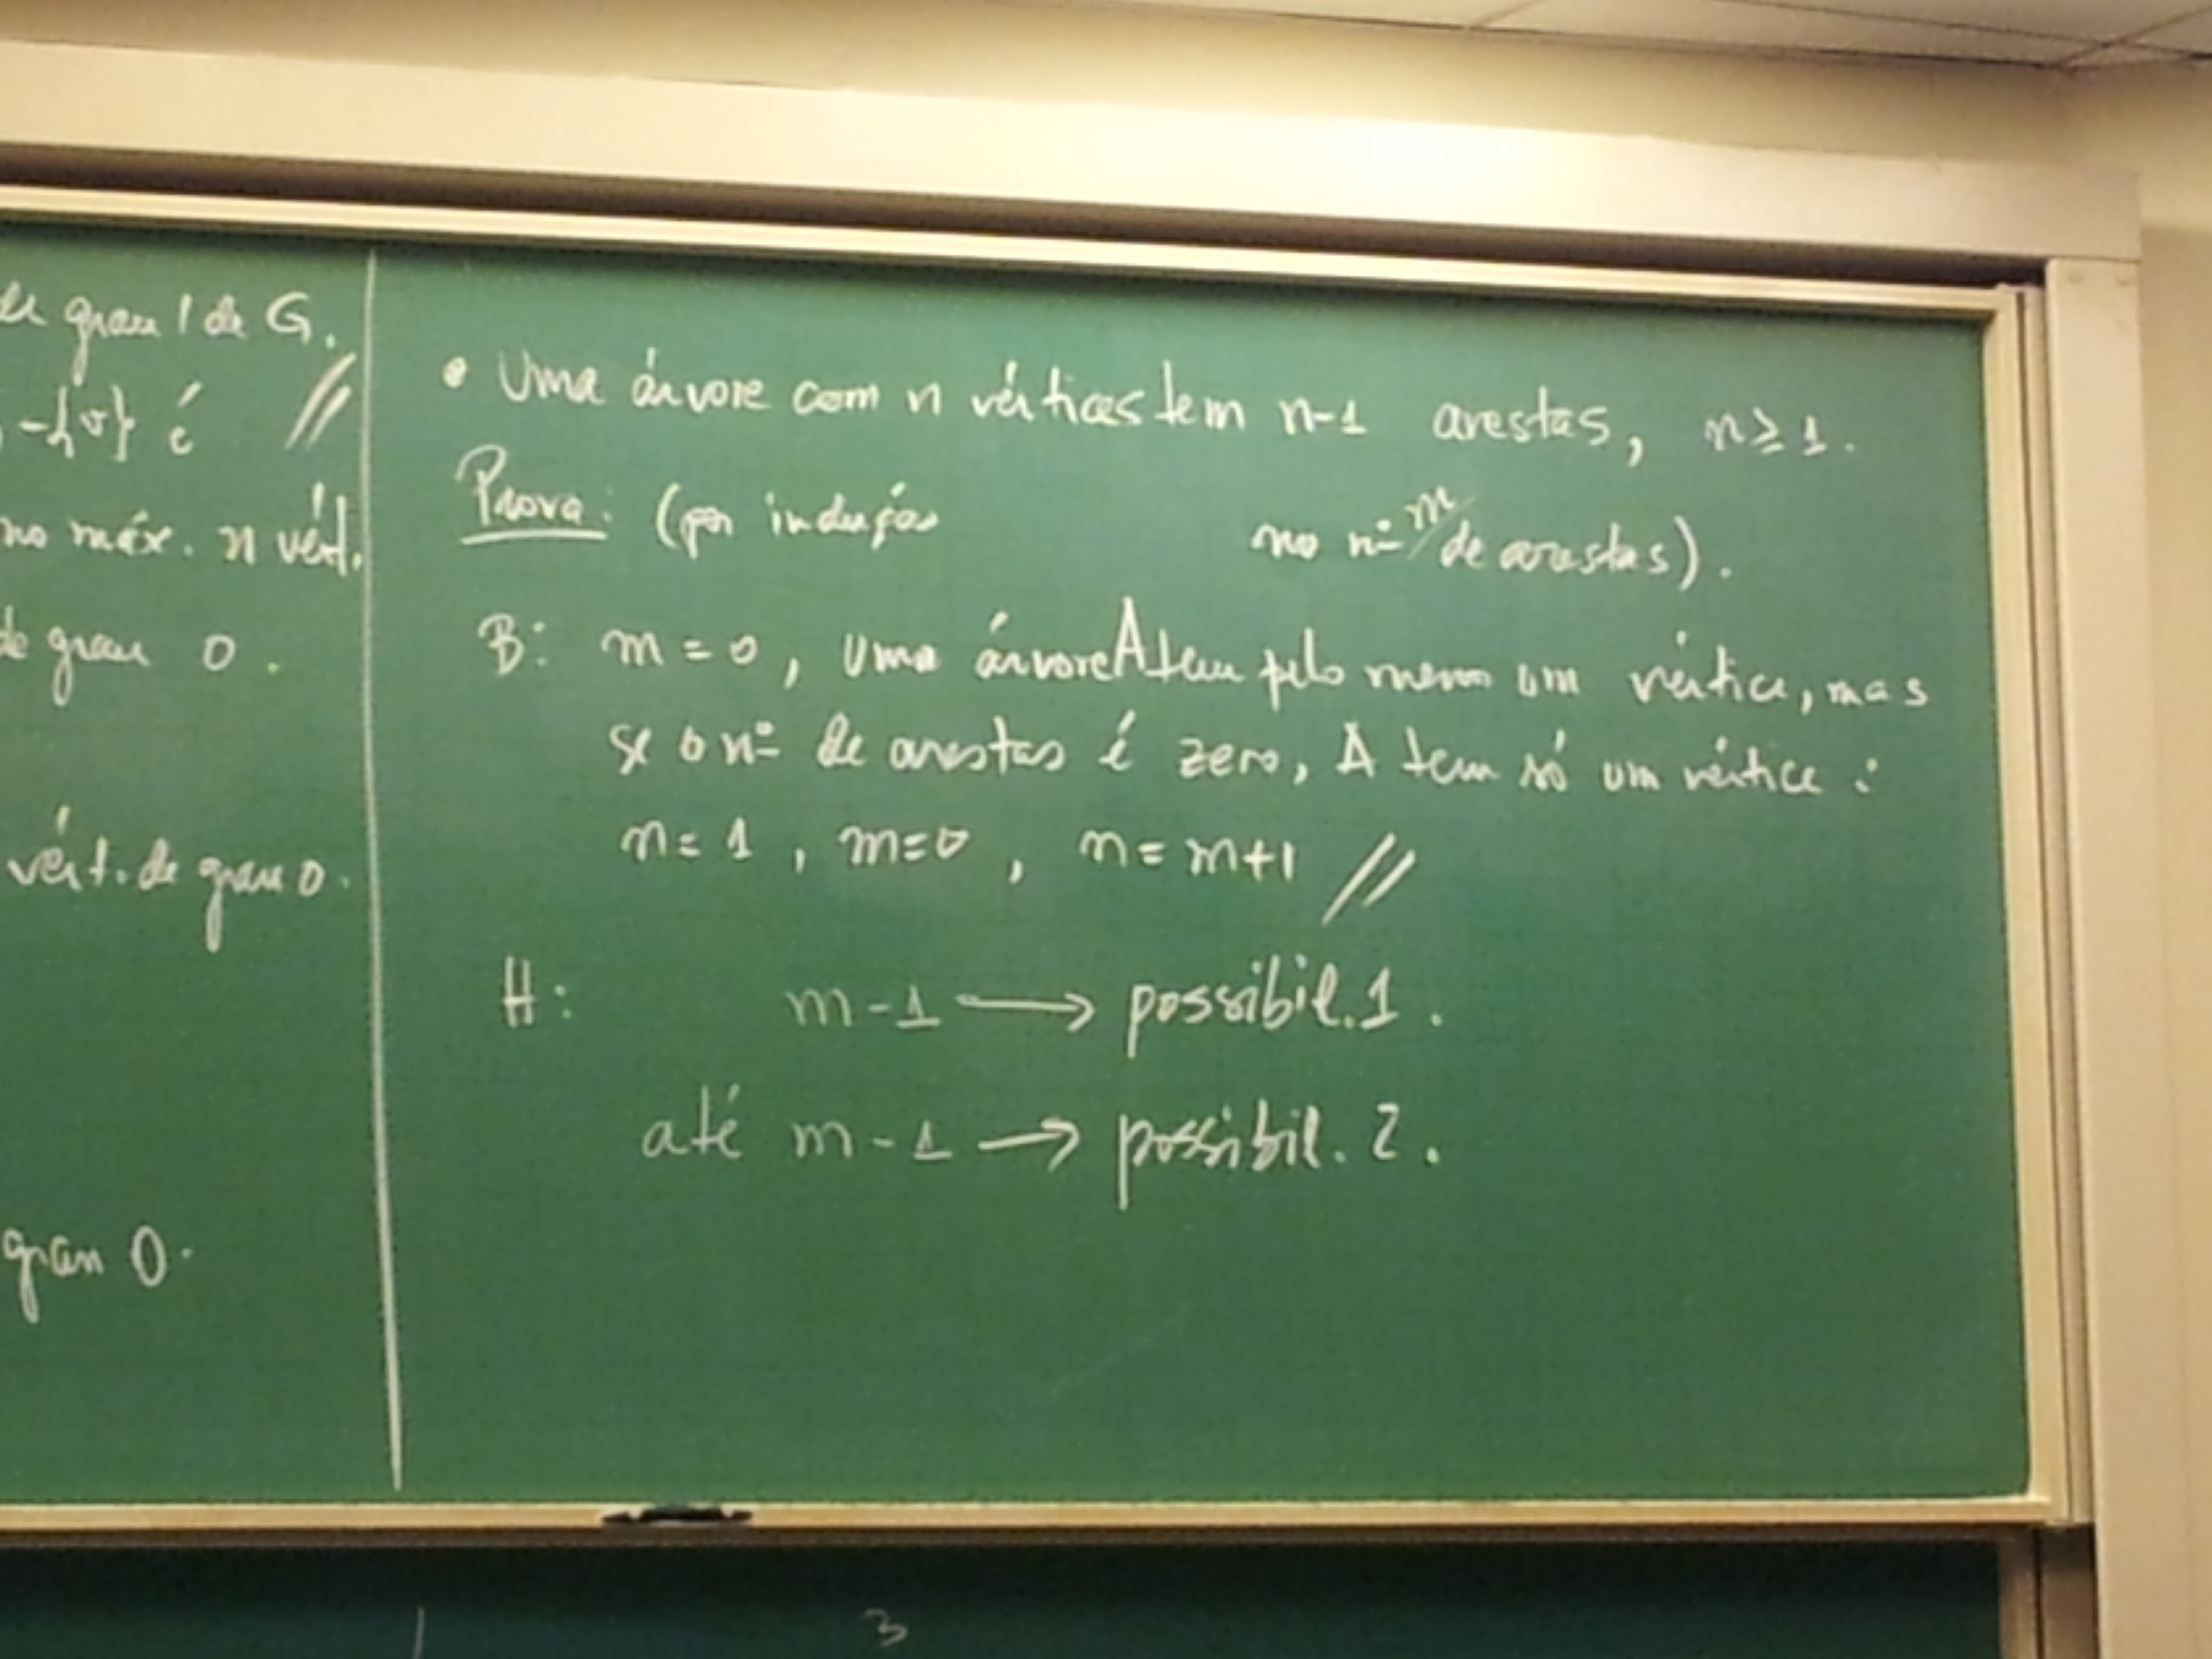 grau 1 de G.
-{v} é //
no máx. n vért.
de grau 0.
vért. de grau 0.
grau 0.
• Uma árvore com n vértices tem n-1 arestas, n ≥ 1.
Prova: (por indução no nº m de arestas).
B: m = 0, uma árvore A tem pelo menos um vértice, mas
se o nº de arestas é zero, A tem só um vértice :
n = 1 , m=0 , n = m+1 //
H: m-1 ⟶ possibil. 1.
até m-1 ⟶ possibil. 2.
3